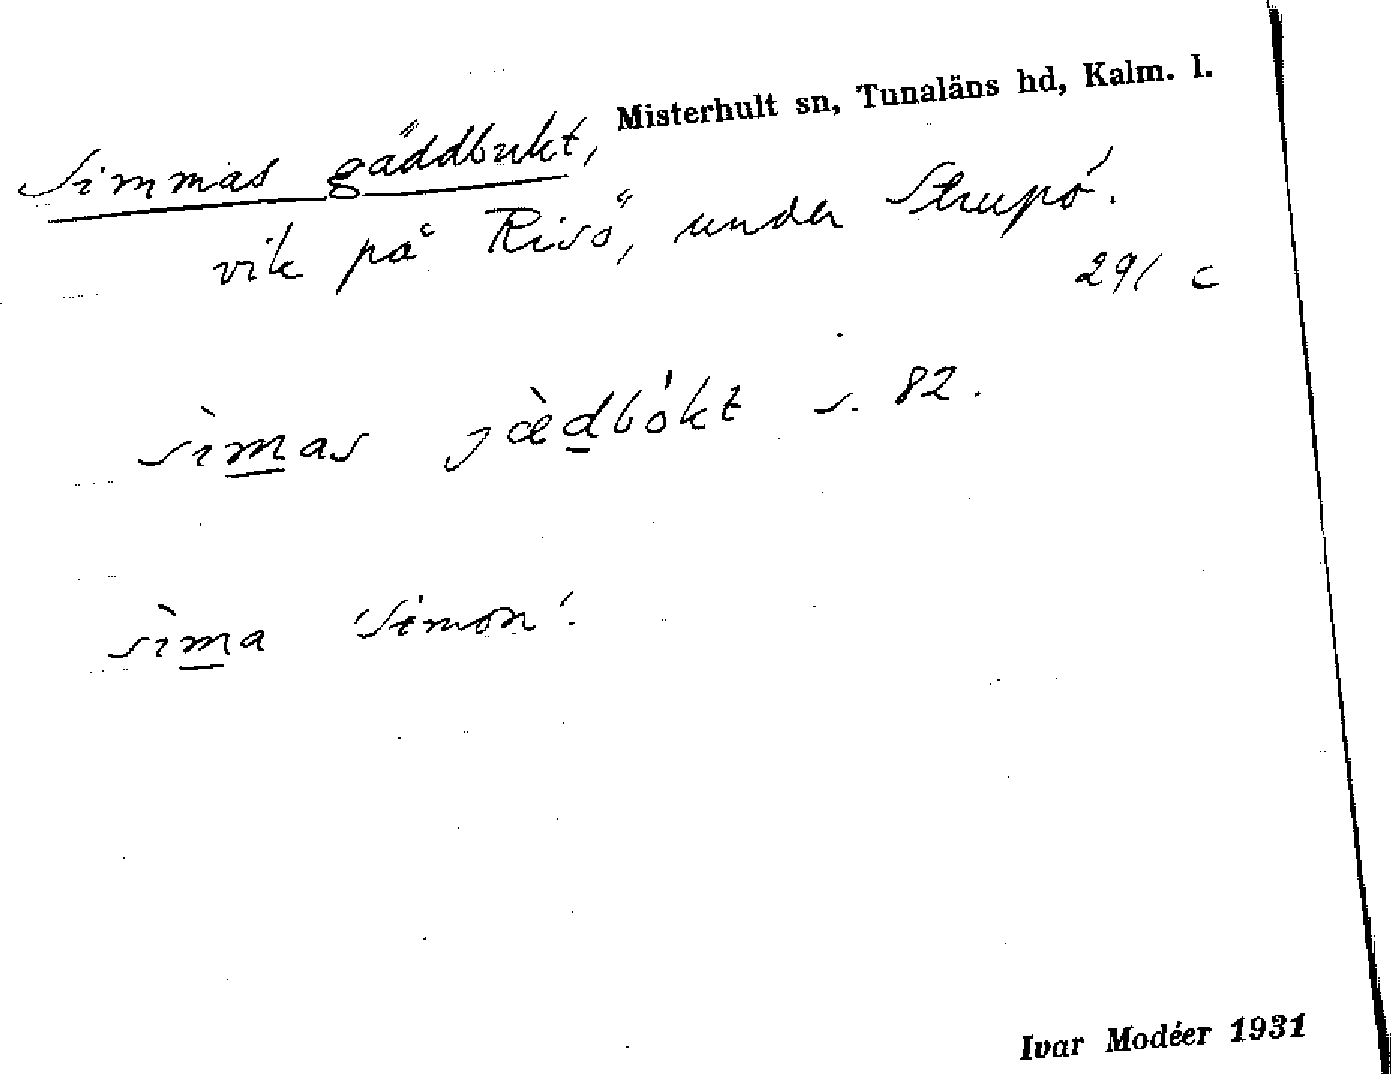 Misterhult sn, Tunaläns hd, Kalm. l.
Simmas gäddbukt,
vik på Risö, under Strupö.
291 c
sìmas jædbókt s. 82.
sìma 'Simon'.
Ivar Modéer 1931